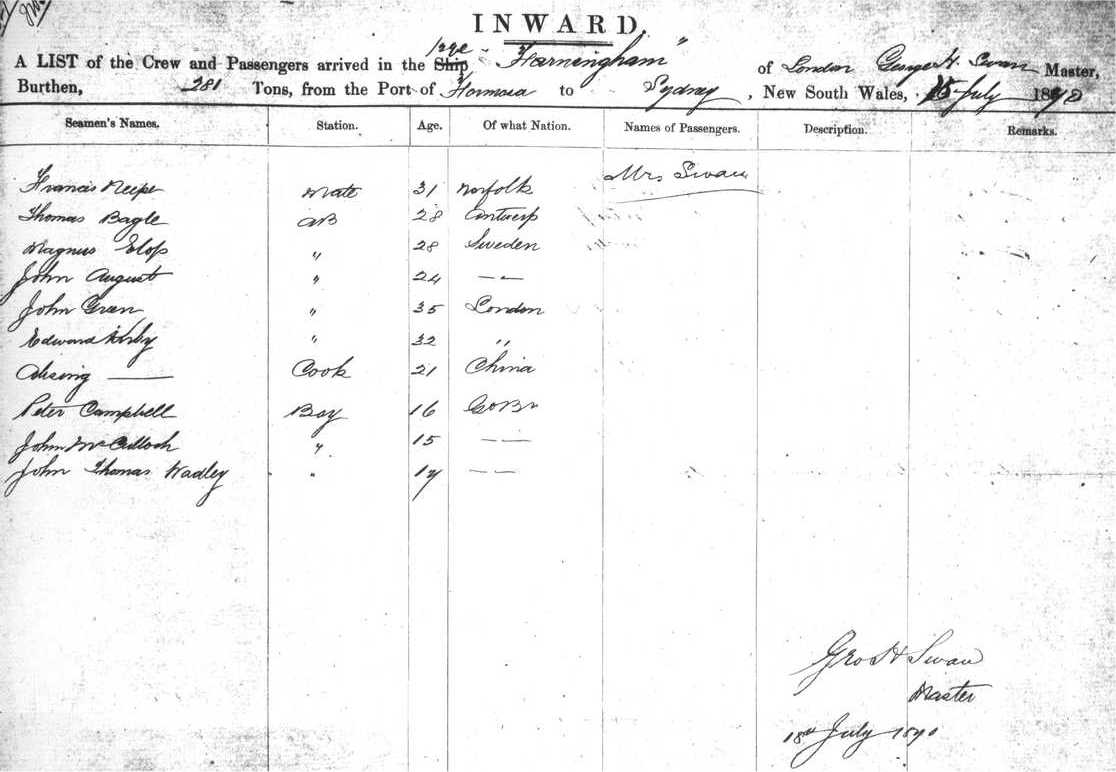 INWARD.
A LIST of the Crew and Passengers arrived in the Ship "Farningham" of London George H. Swan Master,
Burthen, 281 Tons, from the Port of Formosa to Sydney, New South Wales, 15 July 1870
Seamen's Names. Station. Age. Of what Nation. Names of Passengers. Description. Remarks.
Mrs Swan
Francis Mate 31 Norfolk
Thomas Bagle AB 28 Antwerp
Magnus 28 Sweden
John August " 24 — —
John Green " 35 London
Edward Kirby " 32 "
Cook 21 China
Peter Campbell Boy 16 Go Br
John McCulloch " 15 — —
John Thomas Wadley " 17 — —
Geo H Swan
Master
18th July 1870